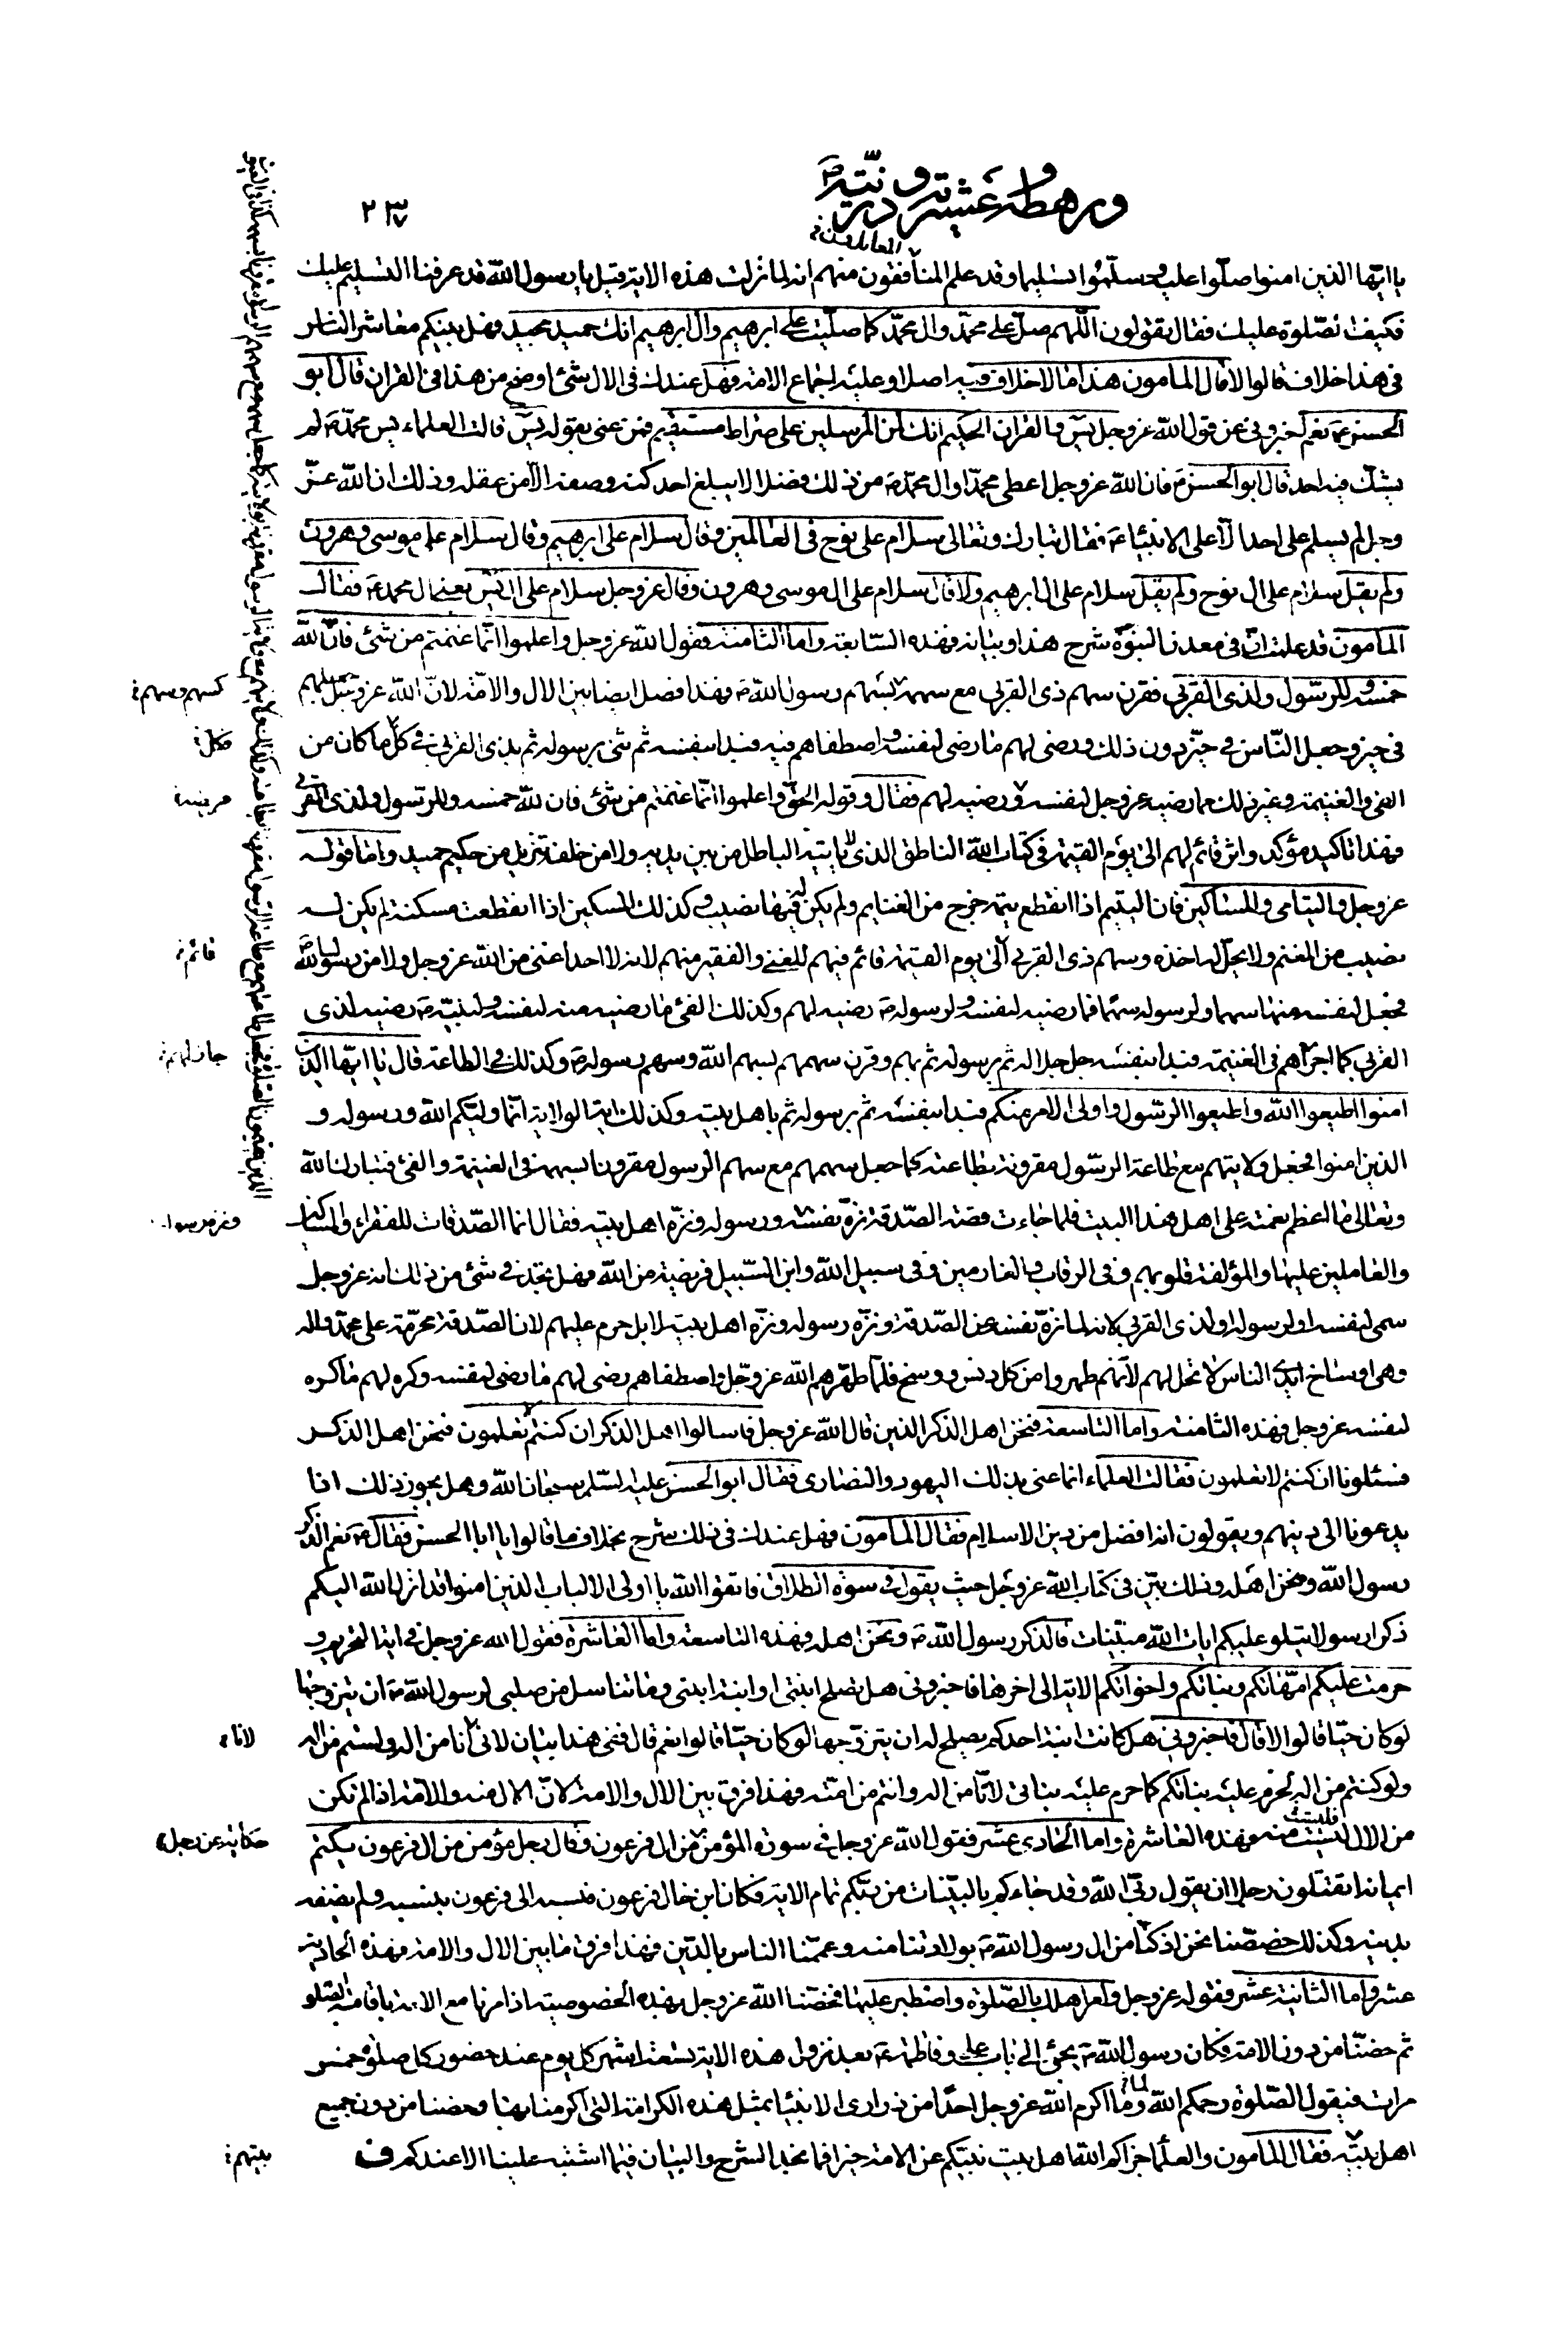 ورهطه وعشيرته وذريته ص
٢٣٧
المعاندون
يا ايها الذين امنوا صلوا عليه وسلموا تسليما وقد علم المنافقون منهم انه لما نزلت هذه الاية قيل يا رسول الله قد عرفنا التسليم عليك
فكيف الصلوة عليك فقال تقولون اللهم صل على محمد وال محمد كما صليت على ابرهيم وال ابرهيم انك حميد مجيد فهل بينكم معاشر الناس
فى هذا خلاف قالوا لا قال المامون هذا ما لا خلاف فيه اصلا وعليه اجماع الامة فهل عندك فى الال شئ اوضح من هذا فى القران قال ابو
الحسن ع نعم اخبرونى عن قول الله عز وجل يس والقران الحكيم انك لمن المرسلين على صراط مستقيم فمن عنى بقوله يس قالت العلماء يس محمد ص لم
يشك فيه احد قال ابو الحسن ع فان الله عز وجل اعطى محمدا وال محمد ص من ذلك فضلا لا يبلغ احد كنه وصفه الا من عقله وذلك ان الله عز
وجل لم يسلم على احد الا على الانبياء ع فقال تبارك وتعالى سلام على نوح فى العالمين وقال سلام على ابرهيم وقال سلام على موسى وهرون
ولم يقل سلام على ال نوح ولم يقل سلام على ال ابرهيم ولا قال سلام على ال موسى وهرون وقال عز وجل سلام على ال يس يعنى ال محمد ع فقال
المامون قد علمت ان فى معدن النبوة شرح هذا وبيانه فهذه السابعة واما الثامنة فقول الله عز وجل واعلموا انما غنمتم من شئ فان لله
خمسه وللرسول ولذى القربى فقرن سهم ذى القربى مع سهمه بسهم رسول الله ص فهذا فضل ايضا بين الال والامة لان الله عز وجل جعلهم
كسهم وسهم
فى حيز وجعل الناس فى حيز دون ذلك ورضى لهم ما رضى لنفسه واصطفاهم فيه فبدا بنفسه ثم ثنى برسوله ثم بذى القربى فى كل ما كان من
فكل
الفئ والغنيمة وغير ذلك مما رضيه عز وجل لنفسه ورضيه لهم فقال وقوله الحق واعلموا انما غنمتم من شئ فان لله خمسه وللرسول ولذى القربى
فهذا تاكيد مؤكد واثر قائم لهم الى يوم القيمة فى كتاب الله الناطق الذى لا ياتيه الباطل من بين يديه ولا من خلفه تنزيل من حكيم حميد واما قوله
عز وجل واليتامى والمساكين فان اليتيم اذا انقطع يتمه خرج من الغنايم ولم يكن له فيها نصيب وكذلك المسكين اذا انقطعت مسكنته لم يكن له
نصيب من المغنم ولا يحل له اخذه وسهم ذى القربى الى يوم القيمة قائم فيهم للغنى والفقير منهم لانه لا احد اغنى من الله عز وجل ولا من رسول الله ص
قائم
فجعل لنفسه منها سهما ولرسوله سهما فما رضيه لنفسه ولرسوله ص رضيه لهم وكذلك الفئ ما رضيه منه لنفسه ولنبيه ص رضيه لذى
القربى كما اجراهم فى الغنيمة فبدا بنفسه جل جلاله ثم برسوله ثم بهم وقرن سهمهم بسهم الله وسهم رسوله ص وكذلك فى الطاعة قال يا ايها الذين
امنوا اطيعوا الله واطيعوا الرسول واولى الامر منكم فبدا بنفسه ثم برسوله ثم باهل بيته وكذلك اية الولاية انما وليكم الله ورسوله و
الذين امنوا فجعل ولايتهم مع طاعة الرسول مقرونة بطاعته كما جعل سهمهم مع سهم الرسول مقرونا بسهمه فى الغنيمة والفئ فتبارك الله
وتعالى ما اعظم نعمته على اهل هذا البيت فلما جاءت قصة الصدقة نزه نفسه ورسوله ونزه اهل بيته فقال انما الصدقات للفقراء والمساكين
والعاملين عليها والمؤلفة قلوبهم وفى الرقاب والغارمين وفى سبيل الله وابن السبيل فريضة من الله فهل تجد فى شئ من ذلك انه عز وجل
سمى لنفسه او لرسوله او لذى القربى لانه لما نزه نفسه عن الصدقة ونزه رسوله ونزه اهل بيته لا بل حرم عليهم لان الصدقة محرمة على محمد واله
وهى اوساخ ايدى الناس لا تحل لهم لانهم طهروا من كل دنس ووسخ فلما طهرهم الله عز وجل واصطفاهم رضى لهم ما رضى لنفسه وكره لهم ما كره
لنفسه عز وجل فهذه الثامنة واما التاسعة فنحن اهل الذكر الذين قال الله عز وجل فاسالوا اهل الذكر ان كنتم لا تعلمون فنحن اهل الذكر
فسئلونا ان كنتم لا تعلمون فقالت العلماء انما عنى بذلك اليهود والنصارى فقال ابو الحسن عليه السلم سبحان الله وهل يجوز ذلك اذا
يدعونا الى دينهم ويقولون انه افضل من دين الاسلام فقال المامون فهل عندك فى ذلك شرح بخلاف ما قالوا يا ابا الحسن فقال ع نعم الذكر
رسول الله ونحن اهله وذلك بين فى كتاب الله عز وجل حيث يقول فى سورة الطلاق فاتقوا الله يا اولى الالباب الذين امنوا قد انزل الله اليكم
ذكرا رسولا يتلو عليكم ايات الله مبينات فالذكر رسول الله ص ونحن اهله فهذه التاسعة واما العاشرة فقول الله عز وجل فى اية التحريم
حرمت عليكم امهاتكم وبناتكم واخواتكم الاية الى اخرها فاخبرونى هل تصلح ابنتى او ابنة ابنتى وما تناسل من صلبى لرسول الله ص ان يتزوجها
لو كان حيا قالوا لا قال فاخبرونى هل كانت ابنة احدكم يصلح له ان يتزوجها لو كان حيا قالوا نعم قال ففى هذا بيان لانى انا من اله ولستم من اله
لانا
ولو كنتم من اله لحرم عليه بناتكم كما حرم عليه بناتى لانا من اله وانتم من امته فهذا فرق بين الال والامة لان الال منه والامة اذا لم تكن
من الال ليست منه فهذه العاشرة واما الحادى عشر فقول الله عز وجل فى سورة المؤمن من ال فرعون وقال رجل مؤمن من ال فرعون يكتم
فليست
حكاية عن رجل
ايمانه اتقتلون رجلا ان يقول ربى الله وقد جاءكم بالبينات من ربكم تمام الاية فكان ابن خال فرعون فنسبه الى فرعون بنسبه ولم يضفه
بدينه وكذلك خصصنا نحن اذ كنا من ال رسول الله ص بولادتنا منه وعممنا الناس بالدين فهذا فرق ما بين الال والامة فهذه الحادية
عشر واما الثانية عشر فقوله عز وجل وامر اهلك بالصلوة واصطبر عليها فخصنا الله عز وجل بهذه الخصوصية اذ امرنا مع الامة باقامة الصلوة
ثم خصنا من دون الامة فكان رسول الله ص يجئ الى باب على وفاطمة ع بعد نزول هذه الاية تسعة اشهر كل يوم عند حضور كل صلوة خمس
مرات فيقول الصلوة رحمكم الله وما اكرم الله عز وجل احدا من ذرارى الانبياء بمثل هذه الكرامة التى اكرمنا بها وخصنا من دون جميع
اهل بيته فقال المامون والعلما جزاكم الله اهل بيت نبيكم عن الامة خيرا فما نجد الشرح والبيان فيما اشتبه علينا الا عندكم ف
بيتهم